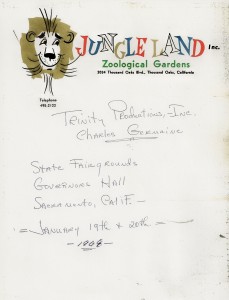 JUNGLELAND Inc.
Zoological Gardens
2054 Thousand Oaks Blvd., Thousand Oaks, California
Telephone
495-2122
Trinity Productions, Inc.
Charles Germaine
State Fairgrounds
Governors Hall
Sacramento, Calif. -
- January 19th & 20th -
- 1968 -